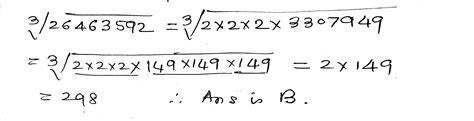 ∛26463592 = ∛2×2×2×3307949
= ∛2×2×2×149×149×149 = 2×149
= 298 ∴ Ans is B.